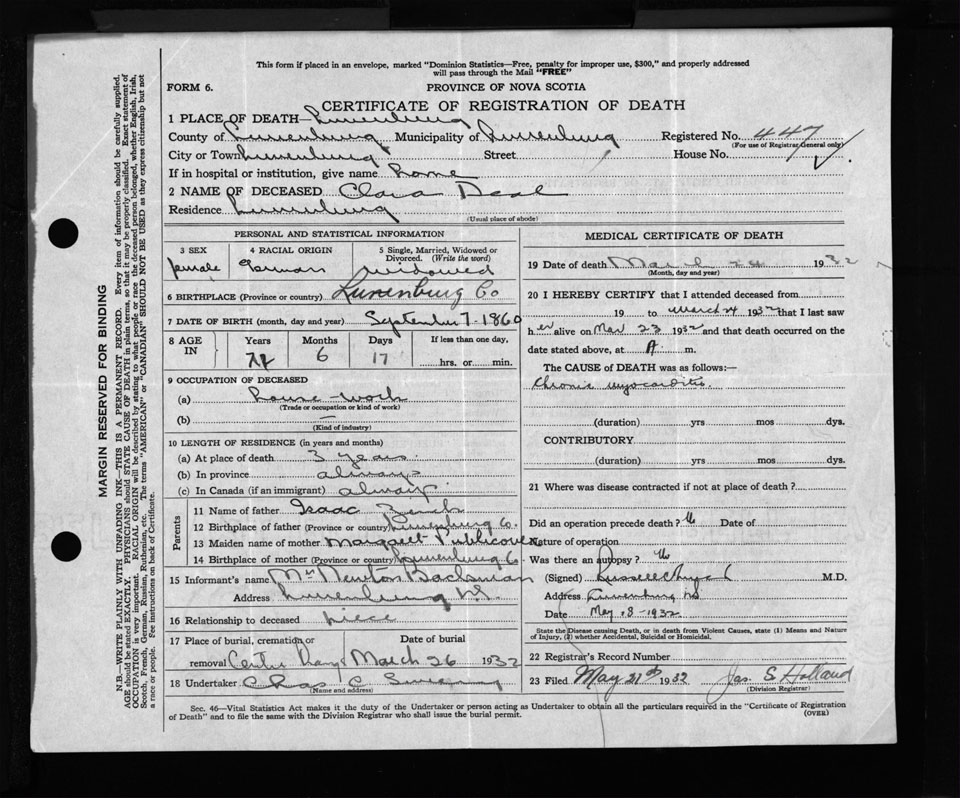 This form if placed in an envelope, marked "Dominion Statistics—Free, penalty for improper use, $300," and properly addressed
will pass through the Mail "FREE"
FORM 6.
PROVINCE OF NOVA SCOTIA
CERTIFICATE OF REGISTRATION OF DEATH
1 PLACE OF DEATH— Lunenburg
County of Lunenburg Municipality of Lunenburg Registered No. 447
(For use of Registrar General only)
City or Town Lunenburg Street House No.
If in hospital or institution, give name Home
2 NAME OF DECEASED Clara Deal
Residence Lunenburg
(Usual place of abode)
PERSONAL AND STATISTICAL INFORMATION
3 SEX 4 RACIAL ORIGIN 5 Single, Married, Widowed or
Divorced. (Write the word)
female German widowed
6 BIRTHPLACE (Province or country) Lunenburg Co
7 DATE OF BIRTH (month, day and year) September 7 - 1860
8 AGE IN Years Months Days If less than one day,
6 17 hrs. or min.
9 OCCUPATION OF DECEASED
(a) House-work
(Trade or occupation or kind of work)
(b)
(Kind of industry)
10 LENGTH OF RESIDENCE (in years and months)
(a) At place of death 3 years
(b) In province always
(c) In Canada (if an immigrant) always
Parents
11 Name of father Isaac
12 Birthplace of father (Province or country) Lunenburg Co.
13 Maiden name of mother Margaret Publicover
14 Birthplace of mother (Province or country) Lunenburg Co
15 Informant's name Mrs Newton Bachman
Address Lunenburg N.S.
16 Relationship to deceased niece
17 Place of burial, cremation or Date of burial
removal March 26 1932
18 Undertaker Chas C
(Name and address)
MEDICAL CERTIFICATE OF DEATH
19 Date of death March 24 1932
(Month, day and year)
20 I HEREBY CERTIFY that I attended deceased from
19 to March 24 1932 that I last saw
her alive on Mar 23 1932 and that death occurred on
date stated above, at A m.
The CAUSE of DEATH was as follows:—
Chronic myocarditis
(duration) yrs mos dys.
CONTRIBUTORY
(duration) yrs. mos dys.
21 Where was disease contracted if not at place of death?
Did an operation precede death? No Date of
Nature of operation
Was there an autopsy? No
(Signed) Russell M.D.
Address Lunenburg NS
Date 1932
State the Disease causing Death, or in death from Violent Causes, state (1) Means and Nature
of Injury, (2) whether Accidental, Suicidal or Homicidal.
22 Registrar's Record Number
23 Filed May 21st 1932 Jas. S. Holland
(Division Registrar)
Sec. 46—Vital Statistics Act makes it the duty of the Undertaker or person acting as Undertaker to obtain all the particulars required in the "Certificate of Registration
of Death" and to file the same with the Division Registrar who shall issue the burial permit.
(OVER)
MARGIN RESERVED FOR BINDING
N.B.—WRITE PLAINLY WITH UNFADING INK—THIS IS A PERMANENT RECORD. Every item of information should be carefully supplied.
AGE should be stated EXACTLY. PHYSICIANS should STATE CAUSE OF DEATH in plain terms, so that it may be properly classified. Exact statement of
OCCUPATION is very important. RACIAL ORIGIN will be described by stating to what people or race the deceased person belonged, whether English, Irish,
Scotch, French, German, Russian, Ruthenian, etc. The terms "AMERICAN" or "CANADIAN" SHOULD NOT BE USED as they express citizenship but not
a race or people. See instructions on back of Certificate.